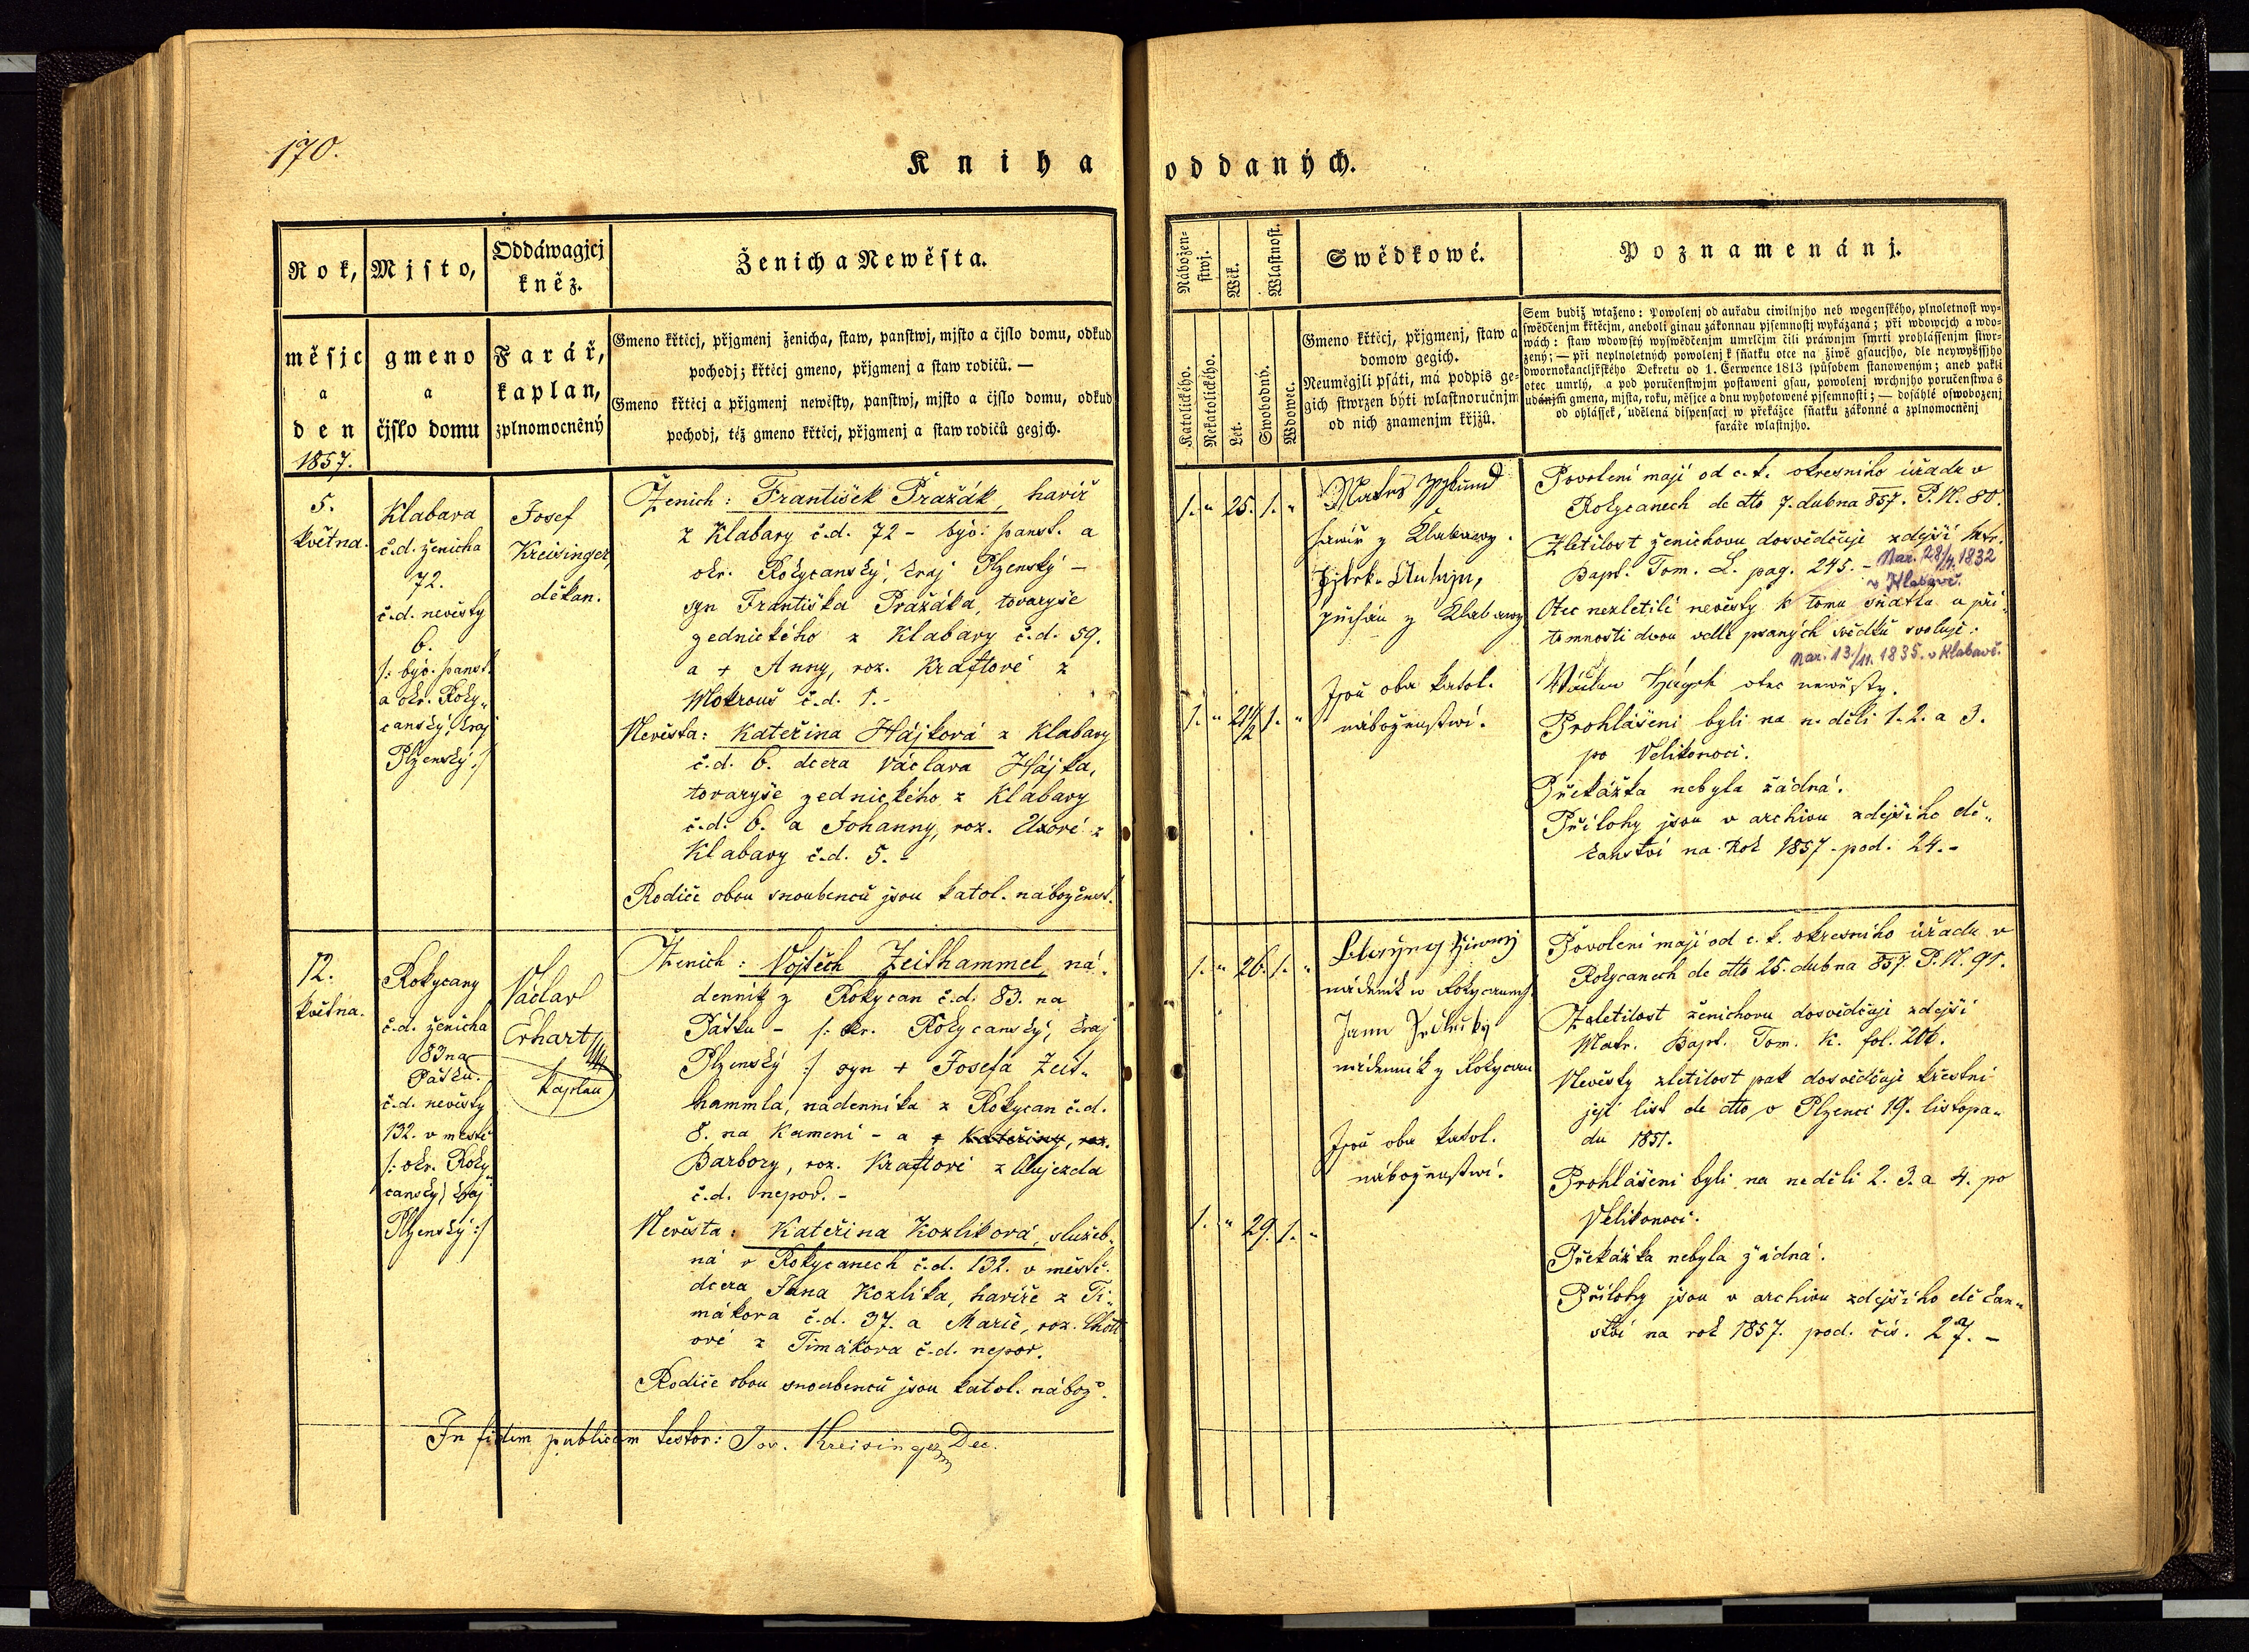 170.
Kniha oddaných.
Rok,
měsjc
a
den
1857.
Mjsto,
gmeno
a
čjslo domu
Oddáwagjcj
kněz.
Farář,
kaplan,
zplnomocněný
Ženich a Newěsta.
Gmeno křtěcj, přjgmenj ženicha, staw, panstwj, mjsto a čjslo domu, odkud
pochodj; křtěcj gmeno, přjgmenj a staw rodičů. —
Gmeno křtěcj a přjgmenj newěsty, panstwj, mjsto a čjslo domu, odkud
pochodj, též gmeno křtěcj, přjgmenj a staw rodičů gegjch.
Nábožen-
stwj.
Katolického.
Nekatolického.
Wěk.
Let.
Wlastnost.
Swobodný.
Wdowec.
Swědkowé.
Gmeno křtěcj, přjgmenj, staw a
domow gegich.
Neuměgjli psáti, má podpis ge-
gich stwrzen býti wlastnoručnjm
od nich znamenjm křjžů.
Poznamenánj.
Sem budiž wtaženo: Powolenj od auřadu ciwilnjho neb wogenského, plnoletnost wy-
swědčenjm křtěcjm, aneboli ginau zákonnau pjsemnostj wykázaná; při wdowcjch a wdo-
wách: staw wdowský wyswědčenjm umrlčjm čili práwnjm smrti prohlássenjm stwr-
zený; — při neplnoletných powolenj k sňatku otce na žiwě gsaucjho, dle neywyšssjho
dwornokancljřského Dekretu od 1. Čerwence 1813 spůsobem stanoweným; aneb pakli
otec umrlý, a pod poručenstwjm postaweni gsau, powolenj wrchnjho poručenstwa s
udánjm gmena, mjsta, roku, měsjce a dnu wyhotowené pjsemnosti; — dosáhlé oswobozenj
od ohlássek, udělená dispensacj w překážce sňatku zákonné a zplnomocněnj
faráře wlastnjho.
5.
května.
Klabava
č.d. ženicha
72.
č.d. nevěsty
6.
/: býv. panst.
a okr. Roky„
canský, kraj
Plzenský :/
Josef
Kreisinger,
děkan.
Ženich: František Pražák, havíř
z Klabavy č.d. 72 - býv. panst. a
okr. Rokycanský, kraj Plzenský —
syn Františka Pražáka, tovaryše
zednického z Klabavy č.d. 59.
a + Anny, roz. Kraftové z
Mokrouš č.d. 1.-
Nevěsta: Kateřina Hájková z Klabavy
č.d. 6. dcera Václava Hájka,
tovaryše zednického z Klabavy
č.d. 6. a Johanny, roz. Uxové z
Klabavy č.d. 5. -
Rodiče obou snoubenců jsou katol. náboženst.
1. „ 25. 1. „
1. „ 21 1/2 1. „
havíř z Klabawy.
z Klabawy
Jsou oba katol.
náboženstwí.
Povolení mají od c.k. okresního úřadu v
Rokycanech de dto 7. dubna 857. P.N. 80.
Zletilost ženichovu dosvědčuje zdejší Matr.
Bapt. Tom. L. pag. 245. - Nar. 28/4. 1832
v Klabavě.
Otec nezletilé nevěsty k tomu sňatku u pří„
tomnosti dvou vedlé psaných svědků svoluje:
Nar. 13/11. 1835. v Klabavě.
Wáclaw Hágek otec newěsty.
Prohlášeni byli na neděli 1. 2. a 3.
po Velikonoci.
Překážka nebyla žádná.
Přílohy jsou v archivu zdejšího dě„
kanství na rok 1857. pod. 24. -
12.
května.
Rokycany
č.d. ženicha
83 na
Pátku.
č.d. nevěsty
132. v městě
/: okr. Roky„
canský, kraj
Plzenský :/
Václav
Erhart
kaplan
Ženich: Vojtěch Zeithammel, ná„
denník z Rokycan č.d. 83. na
Pátku - /: okr. Rokycanský, kraj
Plzenský :/ syn + Josefa Zeit„
hammla, nádenníka z Rokycan č.d.
8. na Kameni - a + Kateřiny, roz.
Barbory, roz. Kraftové z Aujezda
č.d. nepov. -
Nevěsta: Kateřina Kozlíková, služeb„
ná v Rokycanech č.d. 132. v městě.
dcera Jana Kozlíka, havíře z Ti„
mákova č.d. 37. a Marie, roz.
ové z Timákova č.d. nepov.
Rodiče obou snoubenců jsou katol. nábož.
1. „ 26. 1. „
1. „ 29. 1. „
nádeník w Rokycanech
Jann
nádenník z Rokycan
Jsou oba katol.
náboženstwí.
Povolení mají od c.k. okresního úřadu v
Rokycanech de dto 25. dubna 857. P.N. 91.
Zaletilost ženichovu dosvědčuje zdejší
Matr. Bapt. Tom. K. fol. 206.
Nevěsty zletilost pak dosvědčuje křestní
její list de dto v Plzenci 19. listopa„
du 1851.
Prohlášeni byli na neděli 2. 3. a 4. po
Velikonoci.
Překážka nebyla žádná.
Přílohy jsou v archivu zdejšího děkan„
ství na rok 1857. pod. čís. 27. -
In fidem publicam testor: Jos. Kreisinger Dec.